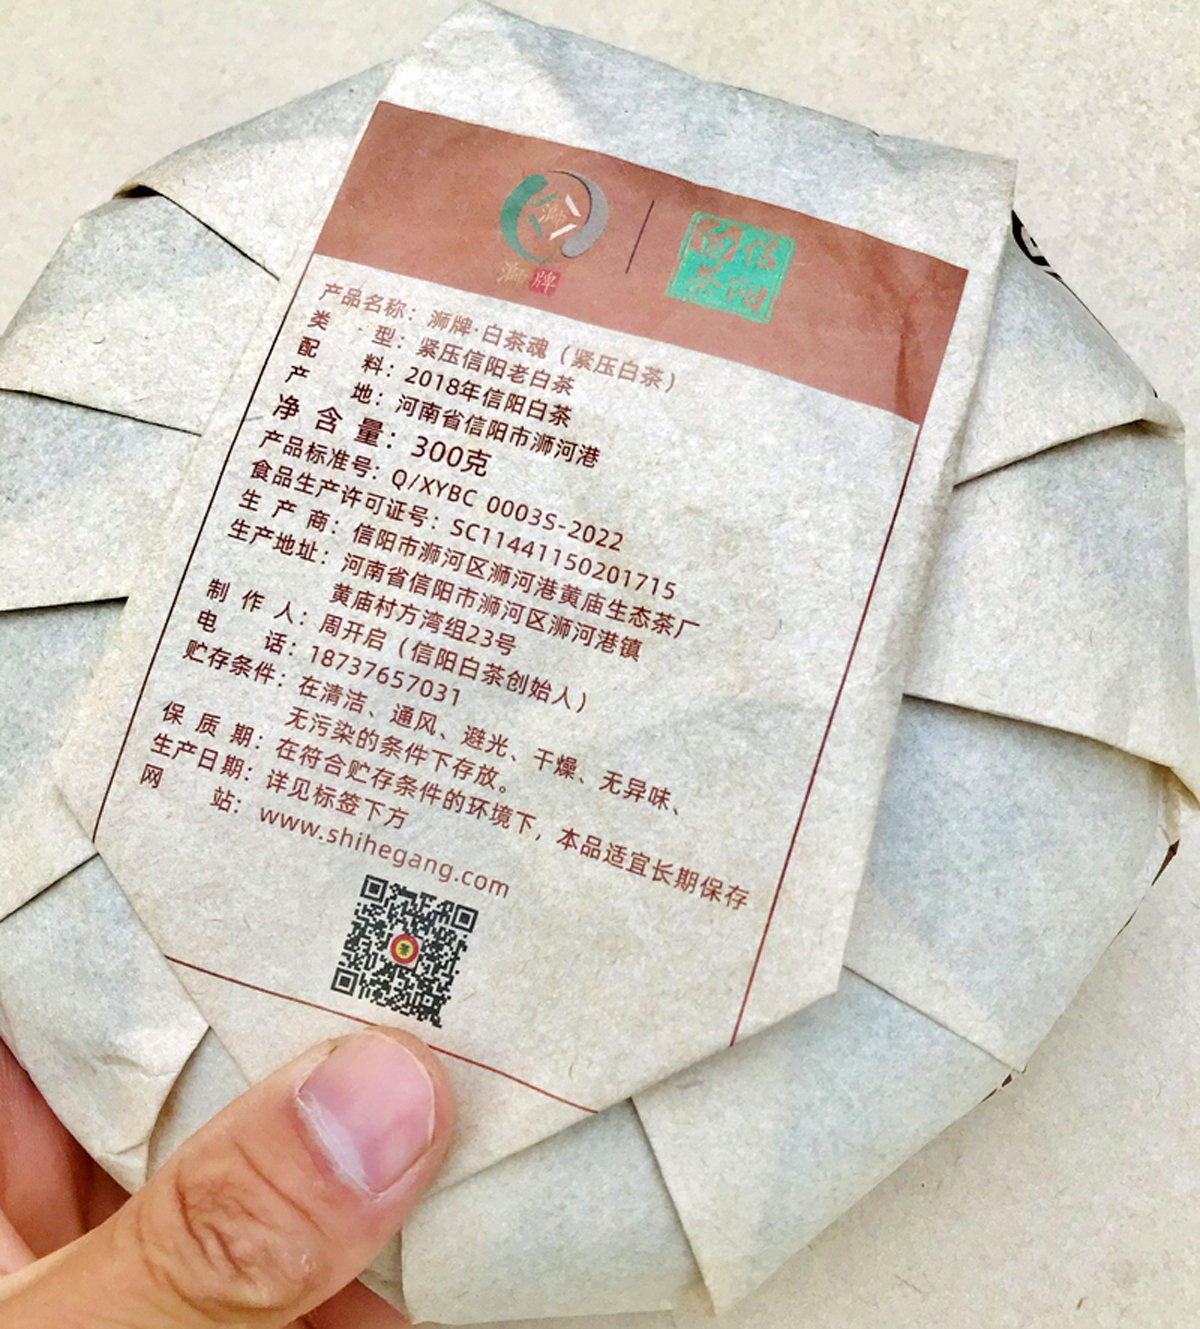 浉
浉牌
信阳
白茶
产品名称：浉牌·白茶魂（紧压白茶）
类 型：紧压信阳老白茶
配 料：2018年信阳白茶
产 地：河南省信阳市浉河港
净 含 量：300克
产品标准号：Q/XYBC 0003S-2022
食品生产许可证号：SC11441150201715
生 产 商：信阳市浉河区浉河港黄庙生态茶厂
生产地址：河南省信阳市浉河区浉河港镇
黄庙村方湾组23号
制 作 人：周开启（信阳白茶创始人）
电 话：18737657031
贮存条件：在清洁、通风、避光、干燥、无异味、
无污染的条件下存放。
保 质 期：在符合贮存条件的环境下，本品适宜长期保存
生产日期：详见标签下方
网 站：www.shihegang.com